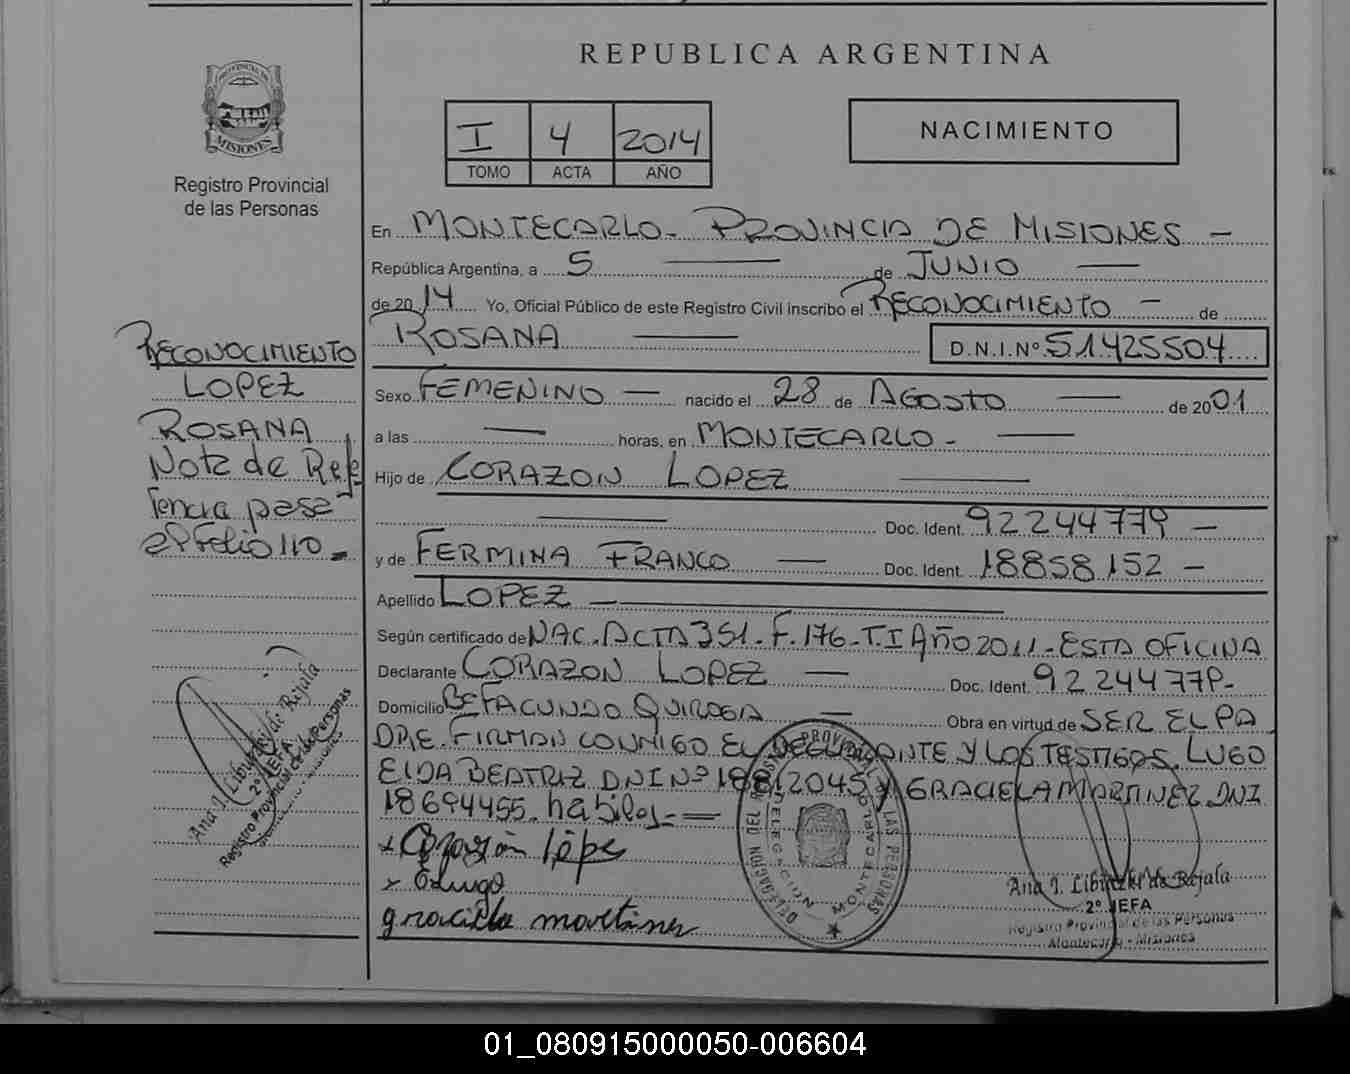 REPUBLICA ARGENTINA
PROVINCIA DE
MISIONES
Registro Provincial
de las Personas
I 4 2014
TOMO ACTA AÑO
NACIMIENTO
En MONTECARLO - PROVINCIA DE MISIONES -
República Argentina, a 5 — de JUNIO —
de 2014 Yo, Oficial Público de este Registro Civil inscribo el RECONOCIMIENTO - de
ROSANA — D.N.I.Nº 51.425504
Sexo FEMENINO — nacido el 28 de AGOSTO — de 2001
a las — horas, en MONTECARLO - —
Hijo de CORAZON LOPEZ —
— Doc. Ident. 92244779 -
y de FERMINA FRANCO — Doc. Ident. 18858152 -
Apellido LOPEZ —
Según certificado de NAC. ACTA 351 - F. 176 - T. I AÑO 2011 - ESTA OFICINA
Declarante CORAZON LOPEZ — Doc. Ident. 92244779-
Domicilio Bº FACUNDO QUIROGA — Obra en virtud de SER EL PA
DRE. FIRMAN CONMIGO EL DECLARANTE Y LOS TESTIGOS. LUGO
ELDA BEATRIZ DNI Nº 18812045 Y GRACIELA MARTINEZ DNI
18694455. hábiles. —
x Corazón lópe
x Elugo
graciela martinez
RECONOCIMIENTO
LOPEZ
ROSANA
Nota de Refe
rencia pasa
al Folio 110 -
Ana I. Libutzki de Rajala
2º JEFA
Registro Provincial de las Personas
DELEGACION DEL REGISTRO PROVINCIAL DE LAS PERSONAS
DELEGACION MONTECARLO
Ana I. Libutzki de Rajala
2º JEFA
Registro Provincial de las Personas
Montecarlo - Misiones
01_080915000050-006604